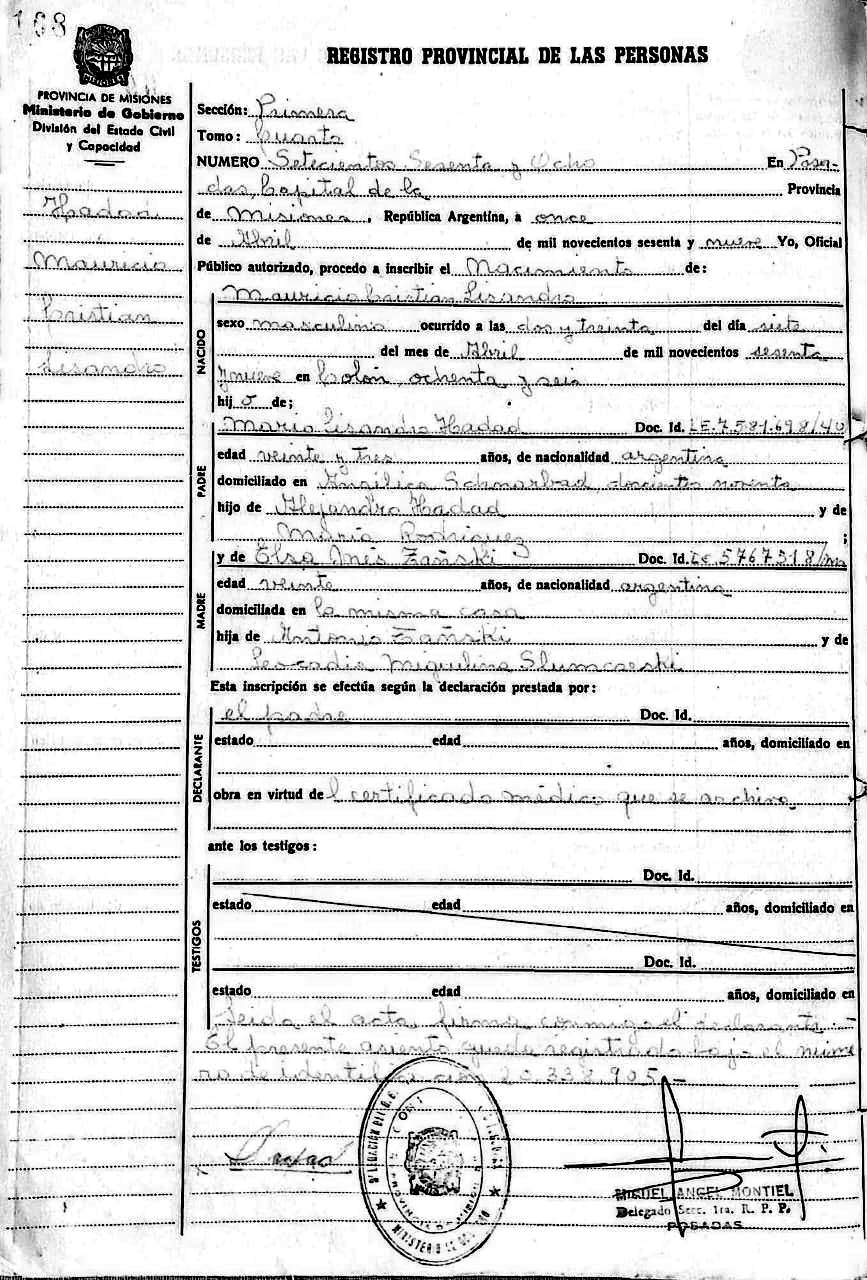 168
REGISTRO PROVINCIAL DE LAS PERSONAS
PROVINCIA DE MISIONES
Ministerio de Gobierno
División del Estado Civil
y Capacidad
Hadad
Mauricio
Cristian
Lisandro
Sección: Primera
Tomo: Cuarto
NUMERO Setecientos Sesenta y Ocho En Posa-
das, Capital de la Provincia
de Misiones, República Argentina, a once
de Abril de mil novecientos sesenta y nueve Yo, Oficial
Público autorizado, procedo a inscribir el Nacimiento de:
NACIDO
Mauricio Cristian Lisandro
sexo masculino ocurrido a las dos y treinta del día siete
del mes de Abril de mil novecientos sesenta
y nueve en Colón, ochenta y seis
hij o de;
PADRE
Mario Lisandro Hadad Doc. Id. LE.7.581.698/40
edad veinte y tres años, de nacionalidad argentina
domiciliado en Angélica Schnarbad, doscientos noventa
hijo de Alejandro Hadad y de
María Rodriguez ;
MADRE
y de Elsa Inés Zañski Doc. Id. LC 5767518/
edad veinte años, de nacionalidad argentina
domiciliada en la misma casa
hija de Antonio Zañski y de
Leocadia Miguelina
Esta inscripción se efectúa según la declaración prestada por:
DECLARANTE
el padre Doc. Id.
estado edad años, domiciliado en
obra en virtud del certificado médico que se archiva
ante los testigos:
TESTIGOS
Doc. Id.
estado edad años, domiciliado en
Doc. Id.
estado edad años, domiciliado en
Leida el acta, firma conmigo el declarante.-
El presente asiento queda registrado bajo el núme
ro de identificación 20.338.905.-
MINISTERIO DE GOBIERNO
MIGUEL ANGEL MONTIEL
Delegado Secc. 1ra. R. P. P.
POSADAS